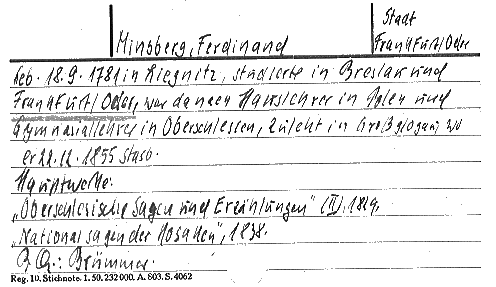 Stadt
Minsberg, Ferdinand Frankfurt/Oder
geb. 18.9.1781 in Liegnitz, studierte in Breslau und
Frankfurt/Oder, war dann Hauslehrer in Polen und
Gymnasiallehrer in Oberschlesien, zuletzt in Großglogau, wo
er 22.12.1855 starb.
Hauptwerke:
„Oberschlesische Sagen und Erzählungen" (II), 1829,
„Nationalsagen der Kosaken", 1838.
Brümmer.
Reg. 10. Stichnote. 1. 50. 232 000. A. 803. S. 4062